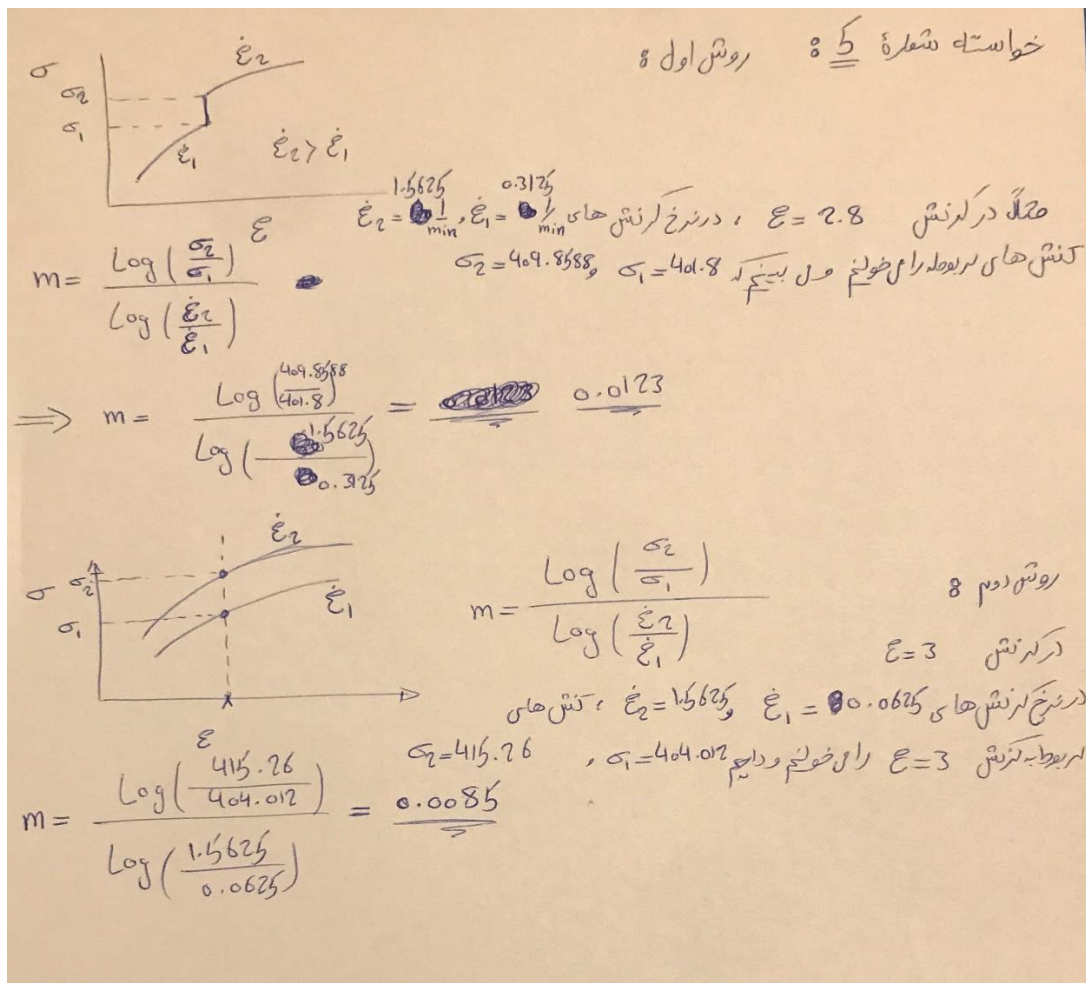 خواسته شمارهٔ 5 : روش اول :
σ
σ₂
σ₁
ε̇₂
ε̇₁
ε̇₂ > ε̇₁
ε
مثلاً در کرنش ε = 2.8 ، در نرخ کرنش های ε̇₁ = 0.3125 1/min , ε̇₂ = 1.5625 1/min
تنش های مربوطه را می خوانیم و می بینیم که σ₁ = 401.8 , σ₂ = 409.8588
m = Log(σ₂/σ₁) / Log(ε̇₂/ε̇₁)
⟹ m = Log(409.8588/401.8) / Log(1.5625/0.3125) = 0.0123
روش دوم :
σ
σ₂
σ₁
ε̇₂
ε̇₁
ε
m = Log(σ₂/σ₁) / Log(ε̇₂/ε̇₁)
در کرنش ε = 3
در نرخ کرنش های ε̇₁ = 0.0625 و ε̇₂ = 1.5625 ، تنش های
مربوط به کرنش ε = 3 را می خوانیم و داریم σ₁ = 404.012 , σ₂ = 415.26
m = Log(415.26/404.012) / Log(1.5625/0.0625) = 0.0085